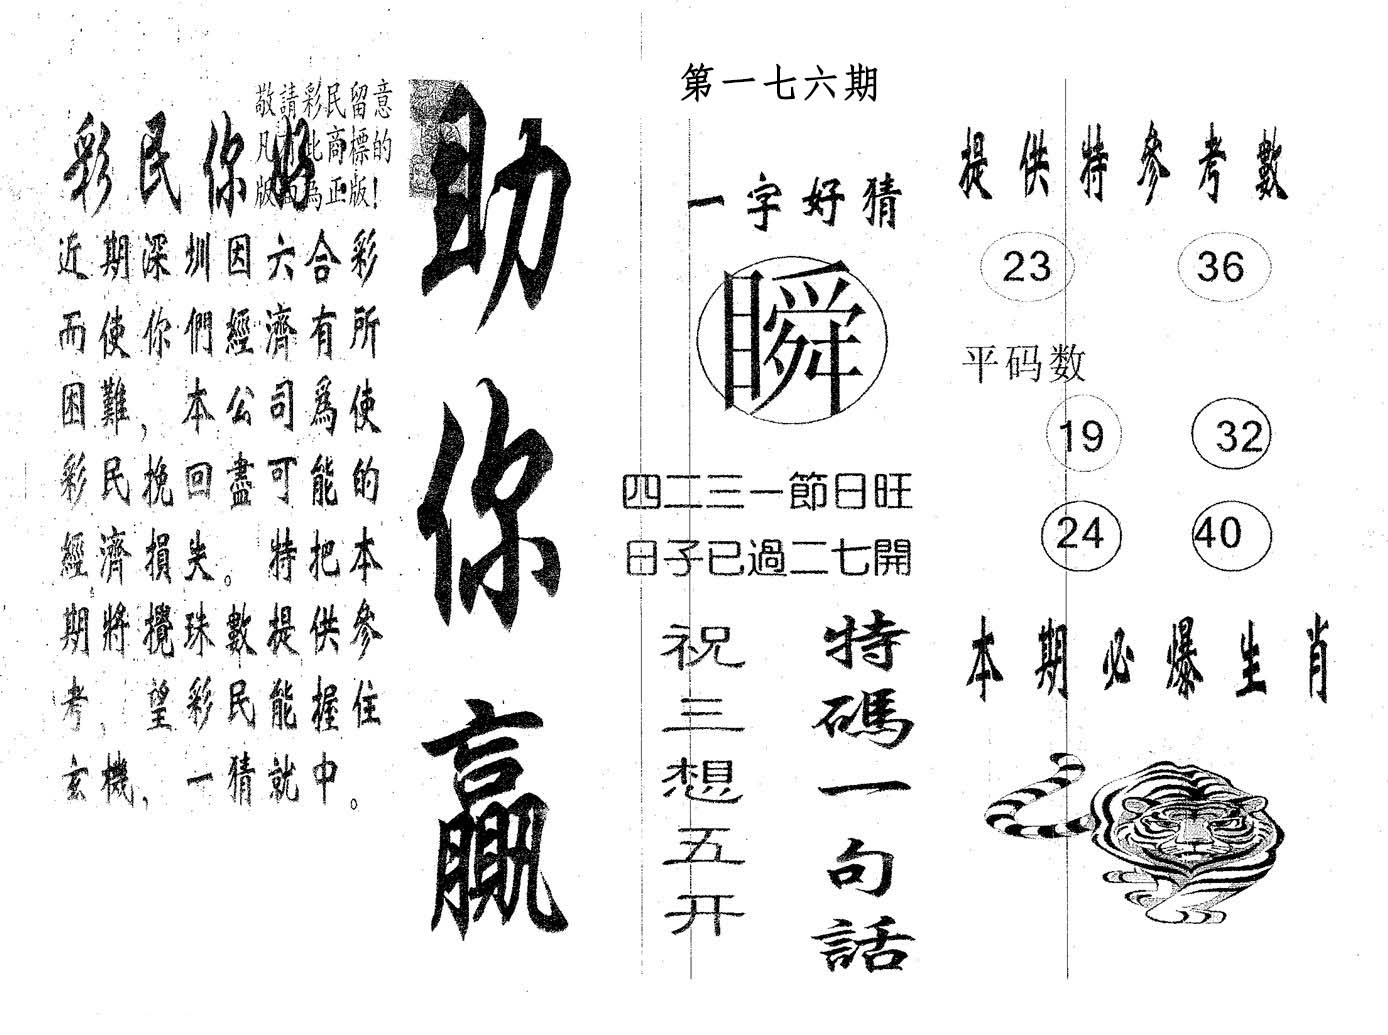 敬請彩民留意
凡有此商標的
版面為正版!
彩民你好
近期深圳因六合彩
而使你們經濟有所
困難，本公司爲使
彩民挽回盡可能的
經濟損失。特把本
期將攪珠數提供參
考，望彩民能握住
玄機，一猜就中。
助你贏
第一七六期
一字好猜
瞬
四二三一節日旺
日子已過二七開
特碼一句話
祝三想五开
提供特參考數
23 36
平码数
19 32
24 40
本期必爆生肖